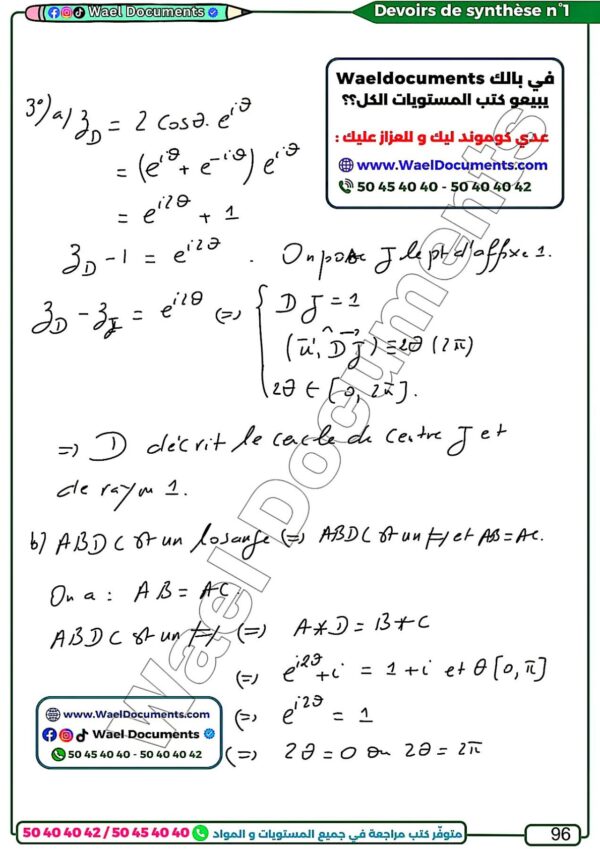 Wael Documents
Devoirs de synthèse n°1
في بالك Waeldocuments
يبيعو كتب المستويات الكل؟؟
عدي كوموند ليك و للعزاز عليك :
www.WaelDocuments.com
50 45 40 40 - 50 40 40 42
3°) a) z_D = 2 cosθ. e^{iθ}
= (e^{iθ} + e^{-iθ}) e^{iθ}
= e^{i2θ} + 1
z_D - 1 = e^{i2θ} . On pose J le pt d'affixe 1.
z_D - z_J = e^{i2θ} (=) { DJ = 1
(u, DJ) ≡ 2θ (2π)
2θ ∈ [0, 2π].
=> D décrit le cercle de centre J et
de rayon 1.
b) ABDC est un losange (=) ABDC est un // et AB = AC.
On a : AB = AC.
ABDC est un // (=) A*D = B*C
(=) e^{i2θ} + i = 1 + i et θ [0, π]
(=) e^{i2θ} = 1
(=) 2θ = 0 ou 2θ = 2π
www.WaelDocuments.com
Wael Documents
50 45 40 40 - 50 40 40 42
Wael Documents
50 40 40 42 / 50 45 40 40 متوفّر كتب مراجعة في جميع المستويات و المواد
96